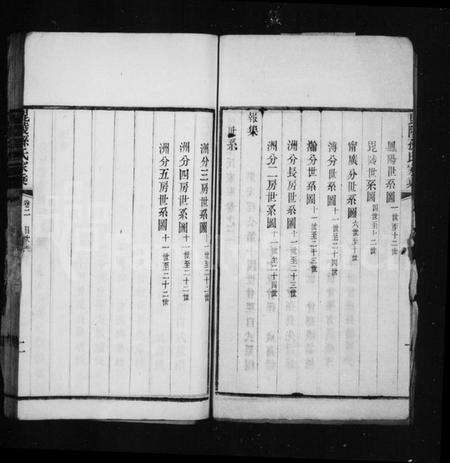 鳳陽世系圖 一世至十二世
毘陵世系圖 四世至十二世
甯廣分世系圖 六世至十世
濤分世系圖 十一世至二十四世
瀚分世系圖 十一世至二十三世
洲分長房世系圖 十一世至二十三世
洲分二房世系圖 十一世至二十四世
報集
世系
洲分三房世系圖 十一世至二十二世
洲分四房世系圖 十一世至二十二世
洲分五房世系圖 十一世至二十二世
毘陵孫氏家乘
卷二 目